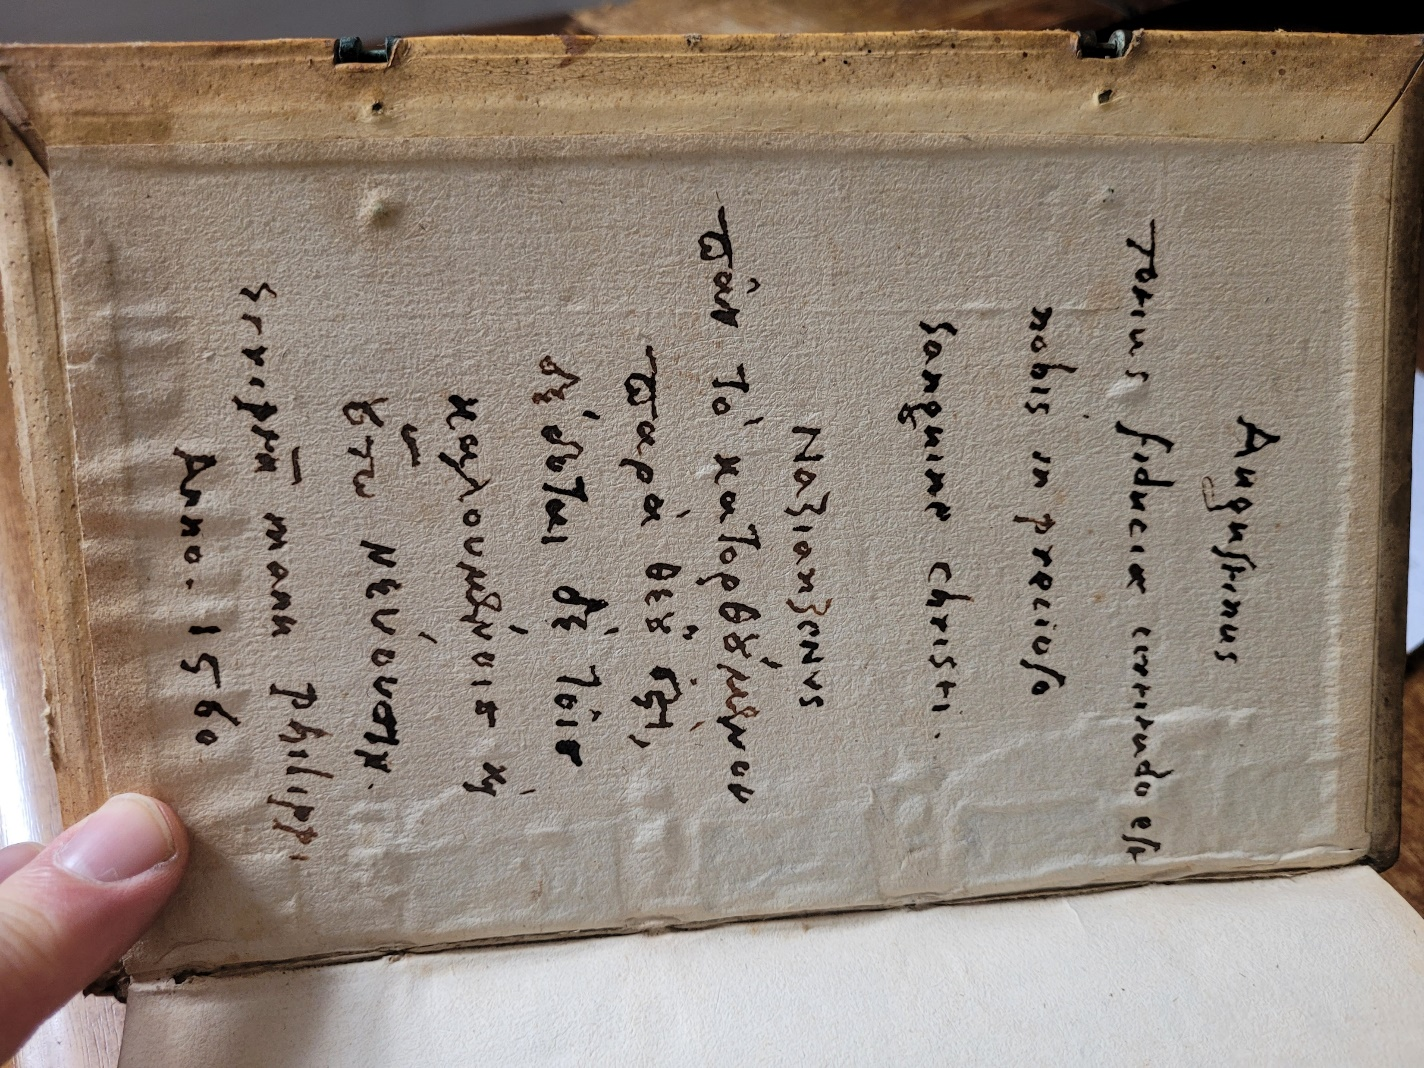 Augustinus
Totius fiduciæ certitudo est
nobis in precioso
Sanguine Christi.
Nazianzenus
πᾶν τὸ κατορθούμενον
παρὰ θεοῦ ἐστι,
δέδοται δὲ τοῖσ
καλουμένοισ καὶ
οὕτω νεύουσιν.
Scripta manu philippi
Anno. 1560